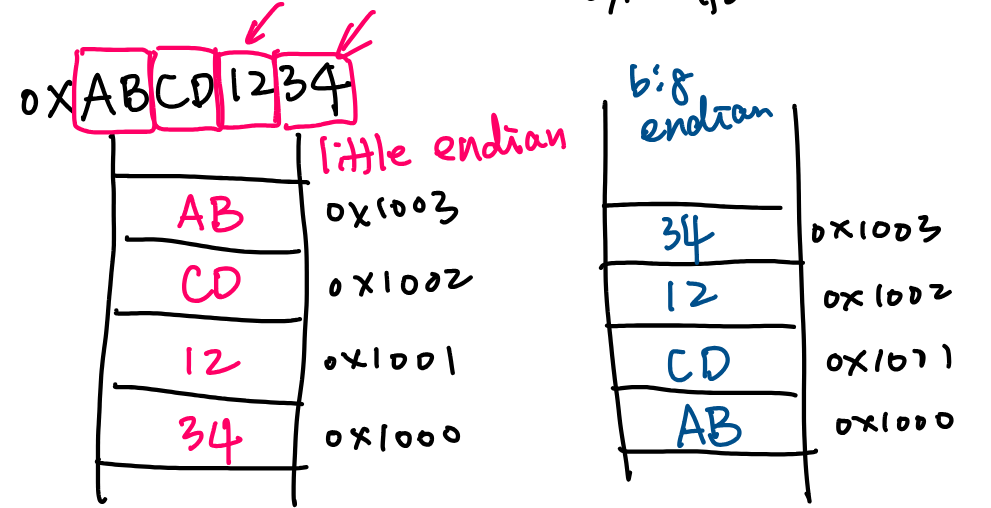 0xABCD1234
little endian
AB 0x1003
CD 0x1002
12 0x1001
34 0x1000
big
endian
34 0x1003
12 0x1002
CD 0x1011
AB 0x1000